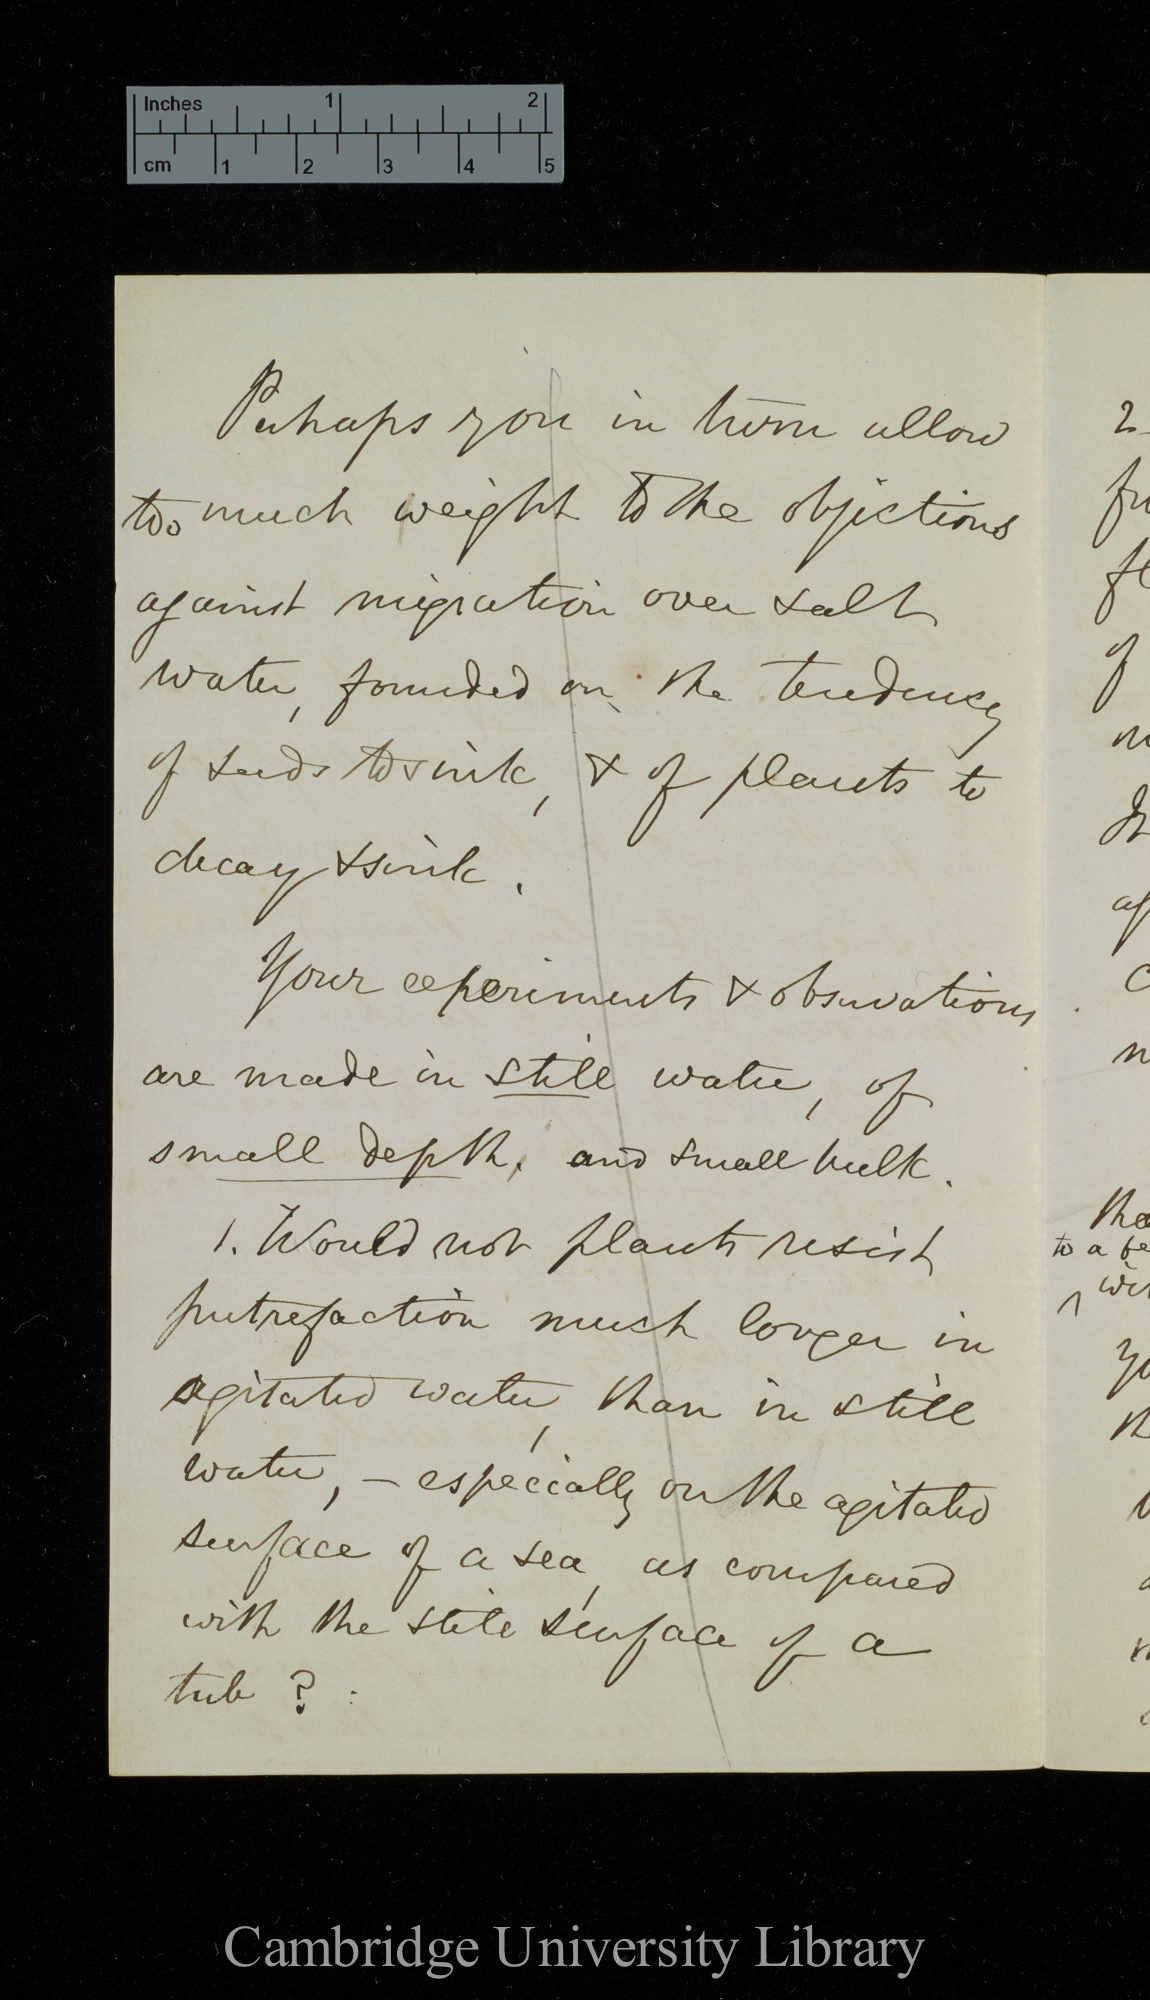 Inches 1 2
cm 1 2 3 4 5
Perhaps you in turn allow
too much weight to the objections
against migration over salt
water, founded on the tendency
of seeds to sink, & of plants to
decay & sink.
Your experiments & observations
are made in still water, of
small depth, and small bulk.
1. Would not plants resist
putrefaction much longer in
agitated water, than in still
water, — especially on the agitated
surface of a sea, as compared
with the still surface of a
tub?
2
of
to a be
Cambridge University Library